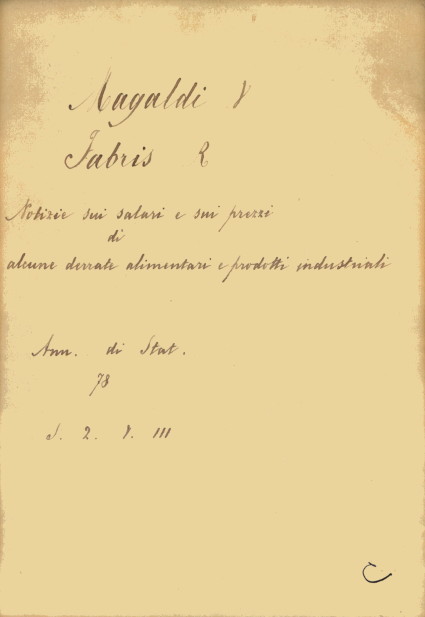 Magaldi V
Fabris R
Notizie sui salari e sui prezzi
di
alcune derrate alimentari e prodotti industriali
Ann. di Stat.
78
S. 2. V. III